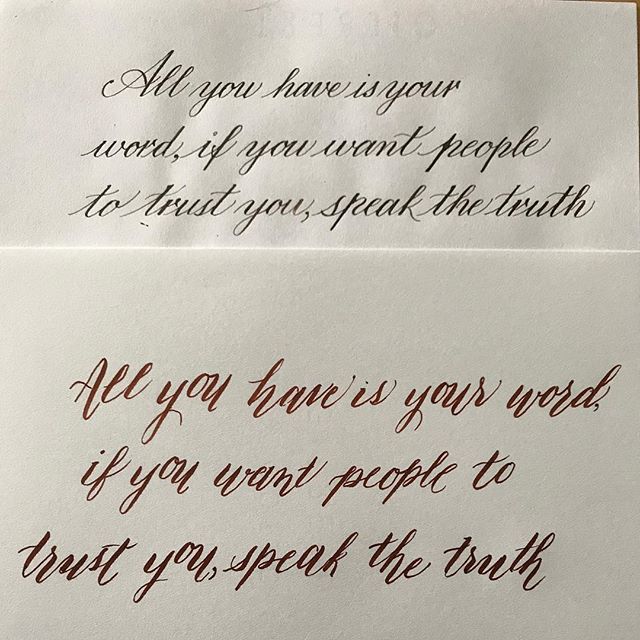 All you have is your
word, if you want people
to trust you, speak the truth
All you have is your word,
if you want people to
trust you, speak the truth